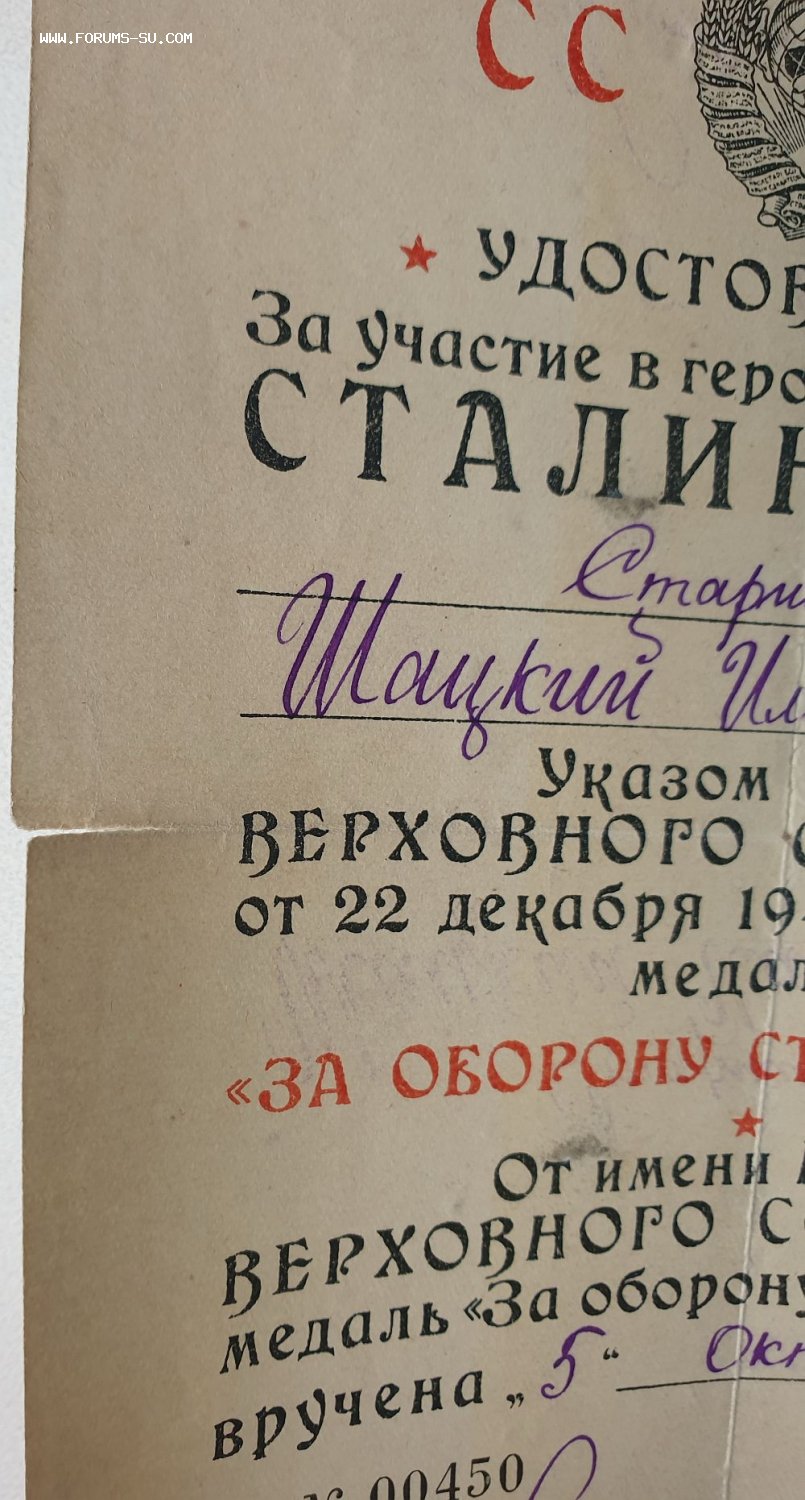 WWW.FORUMS-SU.COM
СС
УДОСТОВ
За участие в геро
СТАЛИН
Стари
Шацкий Ил
Указом
ВЕРХОВНОГО С
от 22 декабря 19
медал
«ЗА ОБОРОНУ СТ
От имени
ВЕРХОВНОГО СО
медаль «За оборону
вручена „5“ Окт
№ 00450